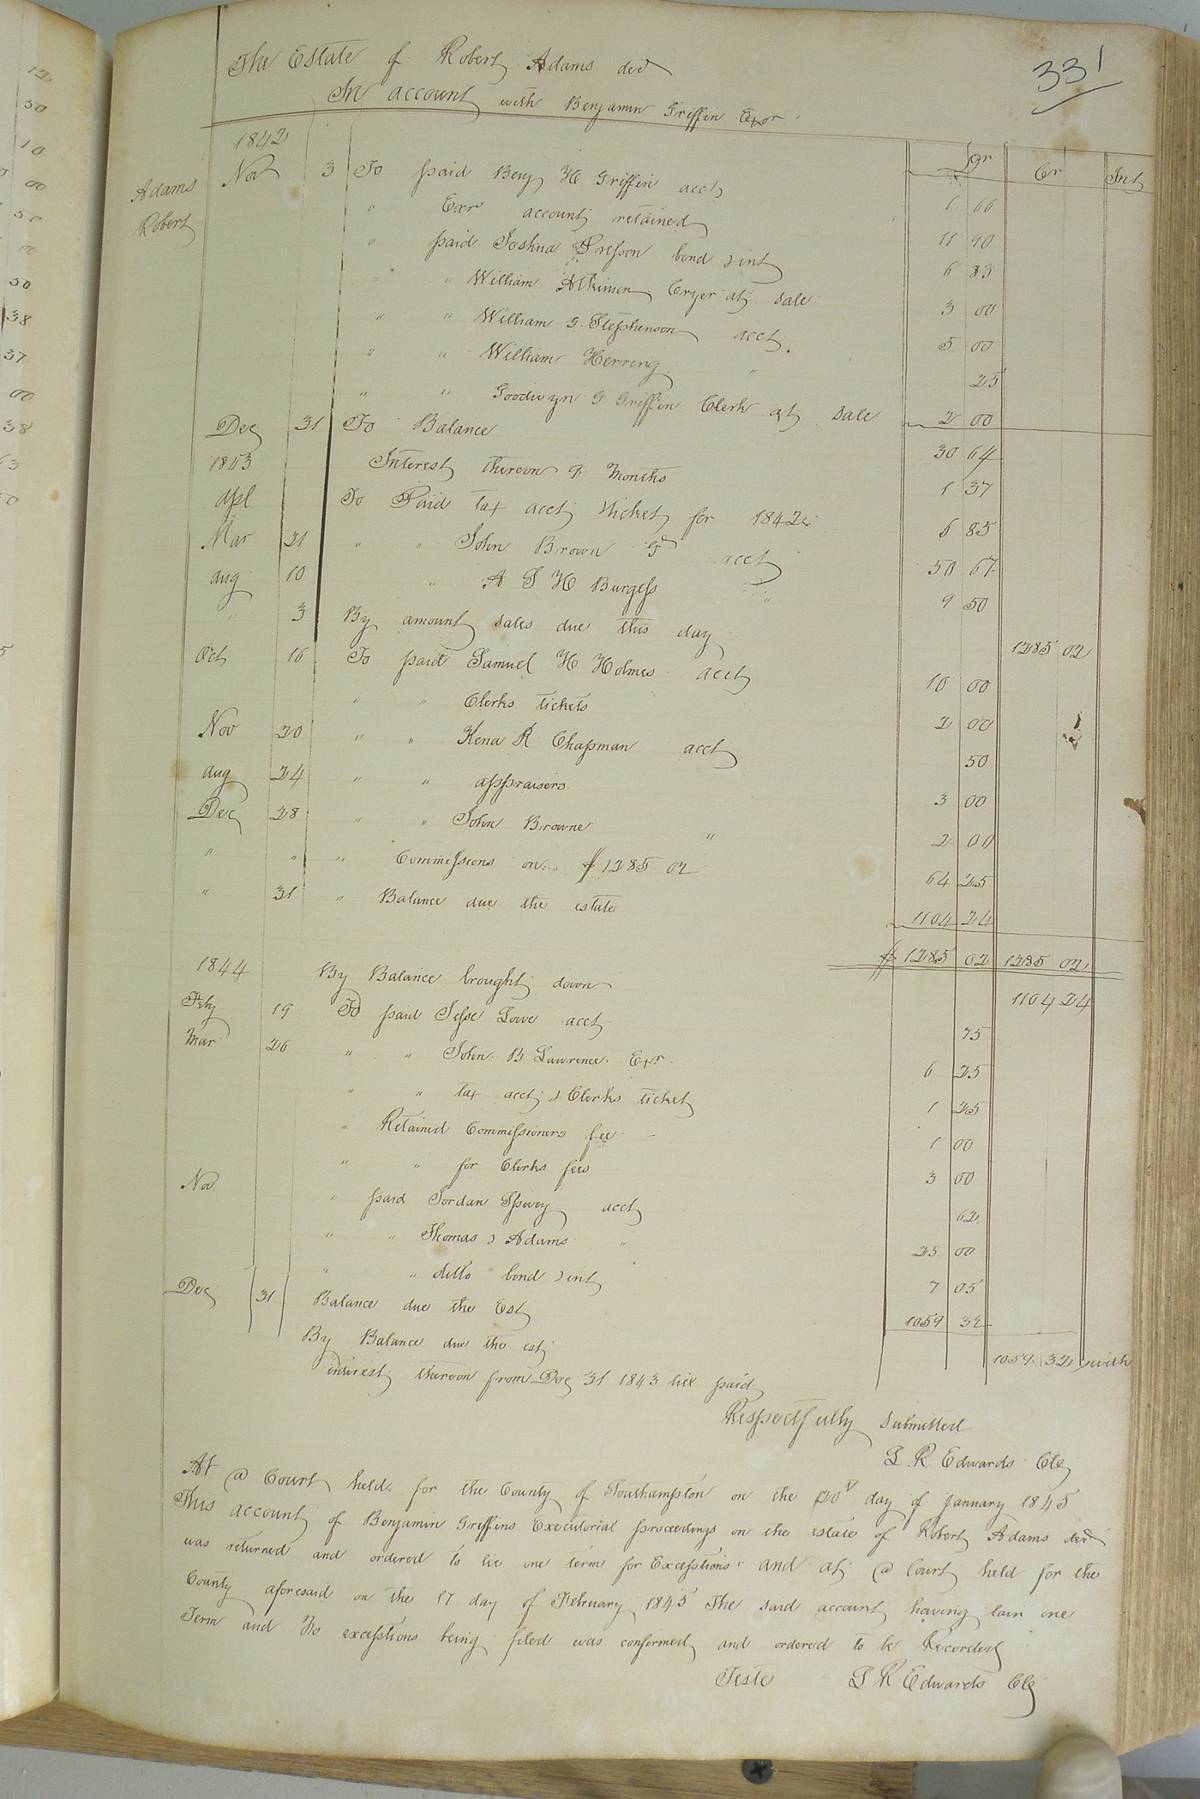 331
The Estate of Robert Adams decd
In account with Benjamin Griffin Exor
Dr Cr Int
Adams
Robert
1842
Nov 3 To paid Benj H Griffin acct 1 66
" Exr account retained 11 90
" paid Joshua Presson bond & int 6 83
" " William Atkinson Cryer at sale 3 00
" " William G Stephenson acct. 5 00
" " William Herring " 25
" " Goodwyn G Griffin Clerk at sale 2 00
Dec 31 To Balance 30 64
1843 Interest thereon 9 Months 1 37
apl To Paid tax acct & ticket for 1842 6 85
Mar 21 " " John Brown Gd acct 50 67
aug 10 " A S H Burgess " 9 50
" 3 By amount sales due this day 1285 02
Oct 16 To paid Samuel H Holmes acct 10 00
" " Clerks tickets 2 00
Nov 20 " " Kena R Chapman acct 50
aug 24 " " appraisers 3 00
Dec 28 " " John Browne " 2 00
" " " Commissions on $1285 02 64 25
" 31 " Balance due the estate 1104 24
$ 1285 02 1285 02
1844 By Balance brought down 1104 24
Feby 19 To paid Jesse Lowe acct 75
Mar 26 " " John B Lawrence Exr 6 25
" " tax acct & Clerks ticket 1 25
" Retained Commissioners fee 1 00
" " for Clerks fees 3 00
Nov " paid Jordan Spivey acct 62
" " Thomas J Adams " 25 00
" " ditto bond & int 7 05
Dec 31 Balance due the Est 1059 32
By Balance due the est 1059 32 with
interest thereon from Dec 31 1843 till paid
Respectfully submitted
L R Edwards Clk
At a Court held for the County of Southampton on the 20th day of January 1845
This account of Benjamin Griffins Executorial proceedings on the estate of Robert Adams decd
was returned and ordered to lie one term for Exceptions: and at a Court held for the
County aforesaid on the 17 day of February 1845 The said account having lain one
Term and No exceptions being filed was confirmed and ordered to be Recorded
Teste L R Edwards Clk